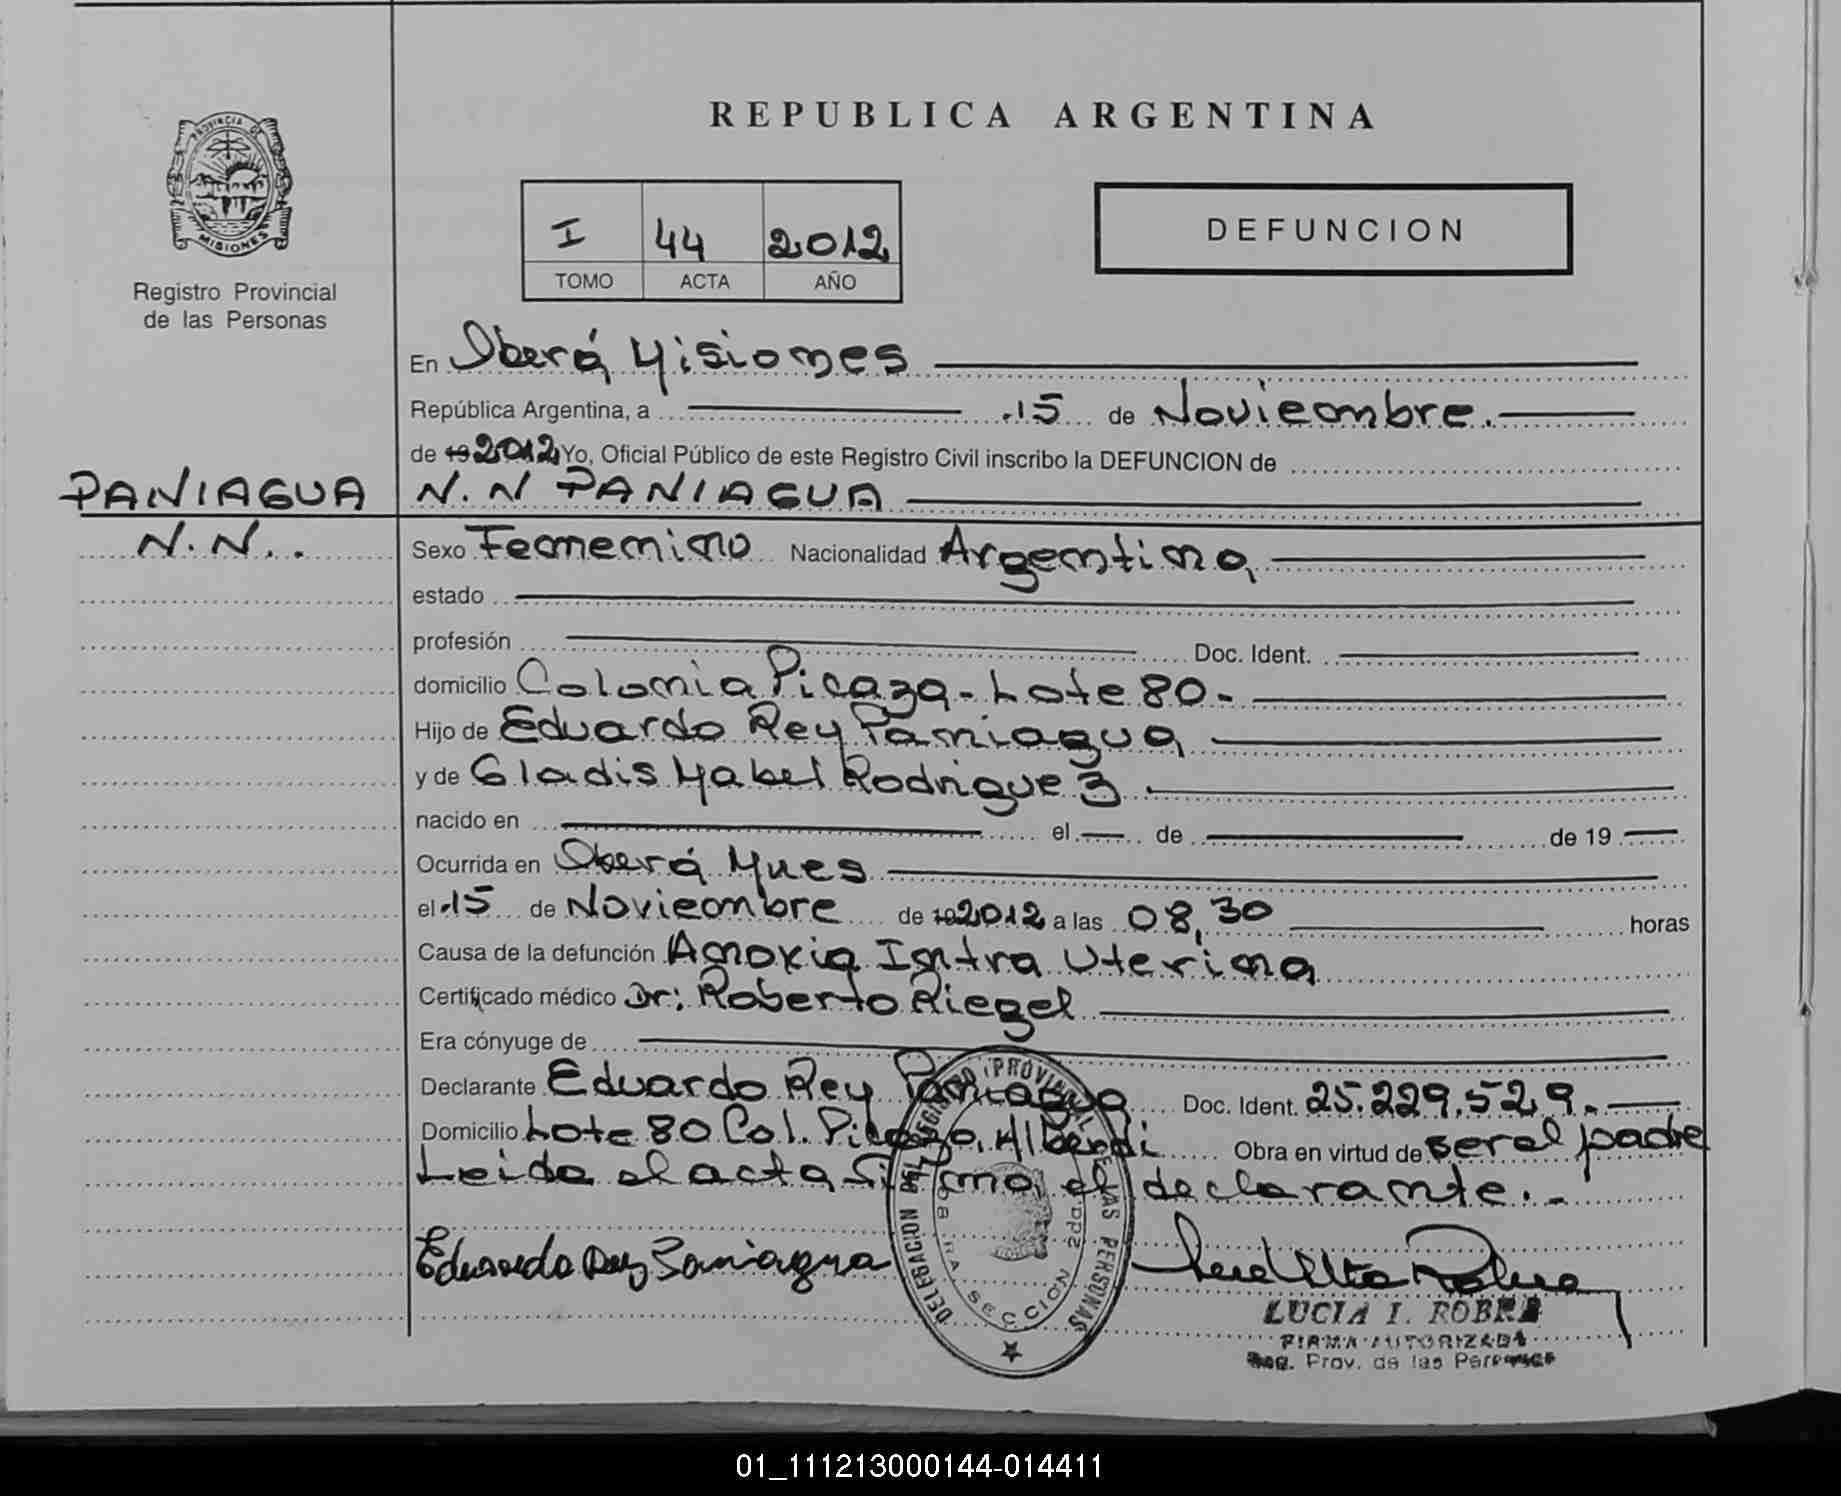 REPUBLICA ARGENTINA
PROVINCIA DE
MISIONES
Registro Provincial
de las Personas
I 44 2012
TOMO ACTA AÑO
DEFUNCION
En Oberá Misiones
República Argentina, a 15 de Noviembre.
de 19 2012 Yo, Oficial Público de este Registro Civil inscribo la DEFUNCION de
PANIAGUA N.N PANIAGUA
N.N.. Sexo Femenino Nacionalidad Argentina
estado
profesión Doc. Ident.
domicilio Colonia Picaza - Lote 80 -
Hijo de Eduardo Rey Paniagua
y de Gladis Mabel Rodriguez
nacido en el de de 19
Ocurrida en Oberá Mnes
el 15 de Noviembre de 19 2012 a las 08,30 horas
Causa de la defunción Anoxia Intra Uterina
Certificado médico Dr: Roberto Riegel
Era cónyuge de
Declarante Eduardo Rey Paniagua Doc. Ident. 25.229.529.
Domicilio Lote 80 Col. Picaza, Alberdi Obra en virtud de ser el padre
Leida el acta firma el declarante.-
Eduardo Rey Paniagua
DELEGACION DEL REGISTRO PROVINCIAL DE LAS PERSONAS
SECCION 2da.
LUCIA I.
FIRMA AUTORIZADA
Reg. Prov. de las Personas
01_111213000144-014411